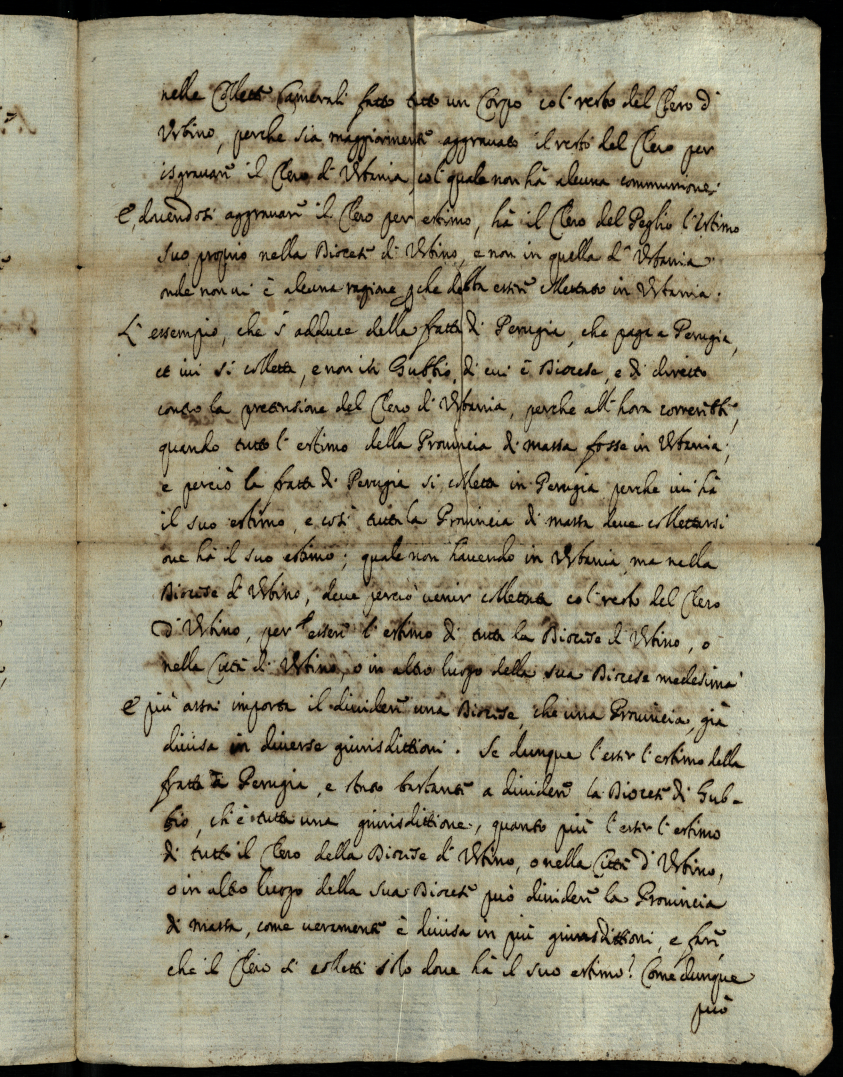 nelle Collette Camerali fatto tutto un Corpo col resto del Clero d'
Urbino, perche sia maggiormente aggrauato il resto del Clero per
isgrauare il Clero d'Urbania col quale non hà alcuna communione.
E, douendosi aggrauare il Clero per estimo, hà il Clero del Peglio l'Estimo
suo proprio nella Diocesi d'Urbino, e non in quella d'Urbania
onde non ui è alcuna ragione che debba essere collettato in Urbania.
L'essempio, che s'adduce della fratta di Perugia, che paga a Perugia,
et iui si colletta, e non in Gubbio, di cui è Diocese, e di diretto
contro la pretensione del Clero d'Urbania, perche all'hora correrebbe,
quando tutto l'estimo della Prouincia di massa fosse in Urbania;
e perciò la fratta di Perugia si colletta in Perugia perche iui hà
il suo estimo, e così tutta la Prouincia di massa deue collettarsi
oue hà il suo estimo; quale non hauendo in Urbania, ma nella
Diocese d'Urbino, deue perciò uenir collettata col resto del Clero
d'Urbino, per essere l'estimo di tutta la Diocese d'Urbino, o
nella Città d'Urbino, o in altro luogo della sua Diocese medesima
E più assai importa il diuidere una Diocese, che una Prouincia, già
diuisa in diuerse giurisdittioni. Se dunque l'esser l'estimo della
fratta di Perugia, è stato bastante a diuidere la Diocesi di Gub-
bio, ch'è tutta una giurisdittione, quanto più l'esser l'estimo
di tutto il Clero della Diocese d'Urbino, o nella Città d'Urbino,
o in altro luogo della sua Diocesi può diuidere la Prouincia
di massa, come ueramente è diuisa in più giurisdittioni, e fare,
che il Clero si colletti solo doue hà il suo estimo? Come dunque
può